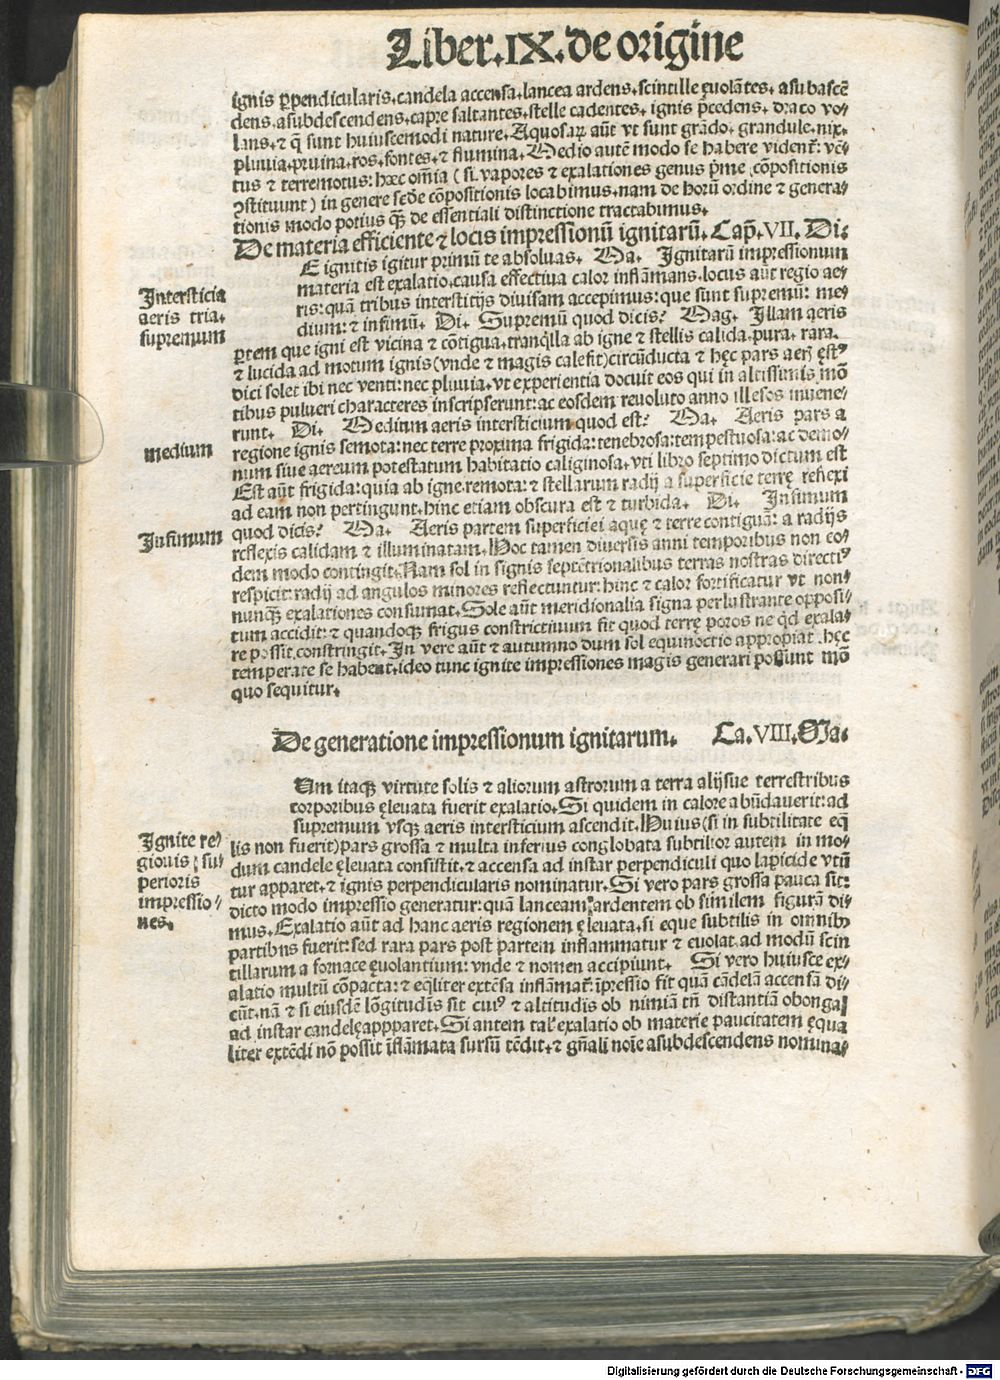 Liber.IX.de origine
ignis ꝑpendicularis.candela accensa.lancea ardens.scintille ęuolātes. asubascē
dens.asubdescendens.capre saltantes.stelle cadentes. ignis p̄cedens. draco vo⸗
lans.⁊ q̄ sunt huiuscemodi nature. Aquosaꝝ aūt vt sunt grādo. grandule.nix.
pluuia.pruina.ros.fontes.⁊ flumina. Medio autē modo se habere vident̄: vē⸗
tus ⁊ terremotus: hęc om̄ia ( si. vapores ⁊ exalationes genus p̄me cōpositionis
ꝯstituunt ) in genere sedē cōpositionis locabimus.nam de horū ordine ⁊ genera⸗
tionis modo potius q̄ꝫ de essentiali distinctione tractabimus.
De materia efficiente ⁊ locis impressionū ignitarū. Cap̄.VII. Di.
E ignitis igitur primū te absoluas. Ma. Ignitarū impressionum
materia est exalatio.causa effectiua calor inflāmans.locus aūt regio ae⸗
ris: quā tribus interstitijs diuisam accepimus: que sunt supremū: me⸗
dium: ⁊ infimū. Di. Supremū quod dicis? Mag. Illam aeris
ꝑtem que igni est vicina ⁊ cōtigua.tranq̇lla ab igne ⁊ stellis calida.pura. rara.
⁊ lucida ad motum ignis(vnde ⁊ magis calefit)circūducta ⁊ hęc pars aerꝭ ęstꝰ
dici solet ibi nec venti: nec pluuia. vt experientia docuit eos qui in altissimis mō
tibus pulueri characteres inscripserunt: ac eosdem reuoluto anno illesos inuene⸗
runt. Di. Medium aeris intersticium quod est? Ma. Aeris pars a
regione ignis semota: nec terre proxima frigida: tenebrosa: tempestuosa: ac demo⸗
num siue aereum potestatum habitatio caliginosa. vti libro septimo dictum est
Est aūt frigida: quia ab igne.remota: ⁊ stellarum radij a superficie terrę reflexi
ad eam non pertingunt.hinc etiam obscura est ⁊ turbida. Di. Infimum
quod dicis? Ma. Aeris partem superficiei aquę ⁊ terre contiguā: a radijs
reflexis calidam ⁊ illuminatam. Hoc tamen diuersis anni temporibus non eo⸗
dem modo contingit. Nam sol in signis septētrionalibus terras nostras directiꝰ
respicit: radij ad angulos minores reflectuntur: hinc ⁊ calor fortificatur vt non⸗
nunq̄ꝫ exalationes consumat. Sole aūt meridionalia signa perlustrante opposi⸗
tum accidit: ⁊ quandocꝫ frigus constrictiuum fit quod terrę poros ne q̇d exala⸗
re possit.constringit. In vere aūt ⁊ autumno dum sol equinoctio appropiat .hęc
temperate se habent.ideo tunc ignite impressiones magis generari possunt mō
quo sequitur.
Intersticia
aeris tria.
supremum
medium
Infimum
De generatione impressionum ignitarum. Ca.VIII.Ma.
Vm itaqꝫ virtute solis ⁊ aliorum astrorum a terra alijsue terrestribus
corporibus ęleuata fuerit exalatio. Si quidem in calore abūdauerit: ad
supremum vsqꝫ aeris intersticium ascendit. Huius(si in subtilitate eq̄
lis non fuerit)pars grossa ⁊ multa inferius conglobata subtilior autem in mo⸗
dum candele ęleuata consistit.⁊ accensa ad instar perpendiculi quo lapicide vtū
tur apparet.⁊ ignis perpendicularis nominatur. Si vero pars grossa pauca sit:
dicto modo impressio generatur: quā lanceam ardentem ob similem figurā di⸗
mus. Exalatio aūt ad hanc aeris regionem ęleuata.si eque subtilis in omnibꝰ
partibus fuerit: sed rara pars post partem inflammatur ⁊ euolat.ad modū scin
tillarum a fornace ęuolantium: vnde ⁊ nomen accipiunt. Si vero huiusce ex⸗
alatio multū cōpacta: ⁊ eq̄liter extēsa inflāmat̄: īpressio fit quā cādelā accensā di⸗
cūt.nā ⁊ si eiusdē lōgitudīs sit cuiꝰ ⁊ altitudis ob nimiā tn̄ distantiā obonga
ad instar candelę appparet. Si autem tal' exalatio ob materie paucitatem ęqua
liter extēdi nō possit īflāmata sursū tēdit.⁊ gn̄ali noīe asubdescendens nomina⸗
Ignite re⸗
gionis su⸗
perioris
impressio⸗
nes.
Digitalisierung gefördert durch die Deutsche Forschungsgemeinschaft - DFG